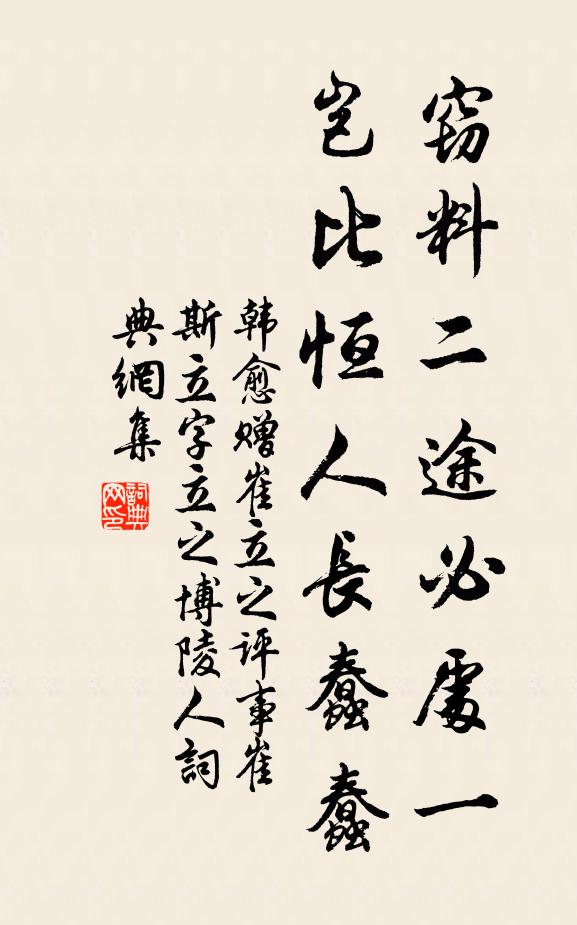 窃料二途必處一
豈比恒人長蠢蠢
韩愈赠崔立之评事崔
斯立字立之博陵人詞
典網集
詞典网印